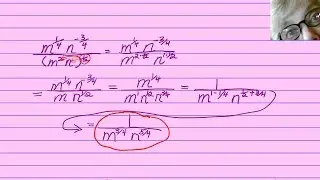 m^{1/4} n^{-3/4} / (m^2 n)^{1/2} = m^{1/4} n^{-3/4} / m^{2·1/2} n^{1·1/2}
= m^{1/4} n^{-3/4} / m n^{1/2} = m^{1/4} / m^1 n^{1/2} n^{3/4} = 1 / m^{1-1/4} n^{1/2+3/4}
= 1 / m^{3/4} n^{5/4}